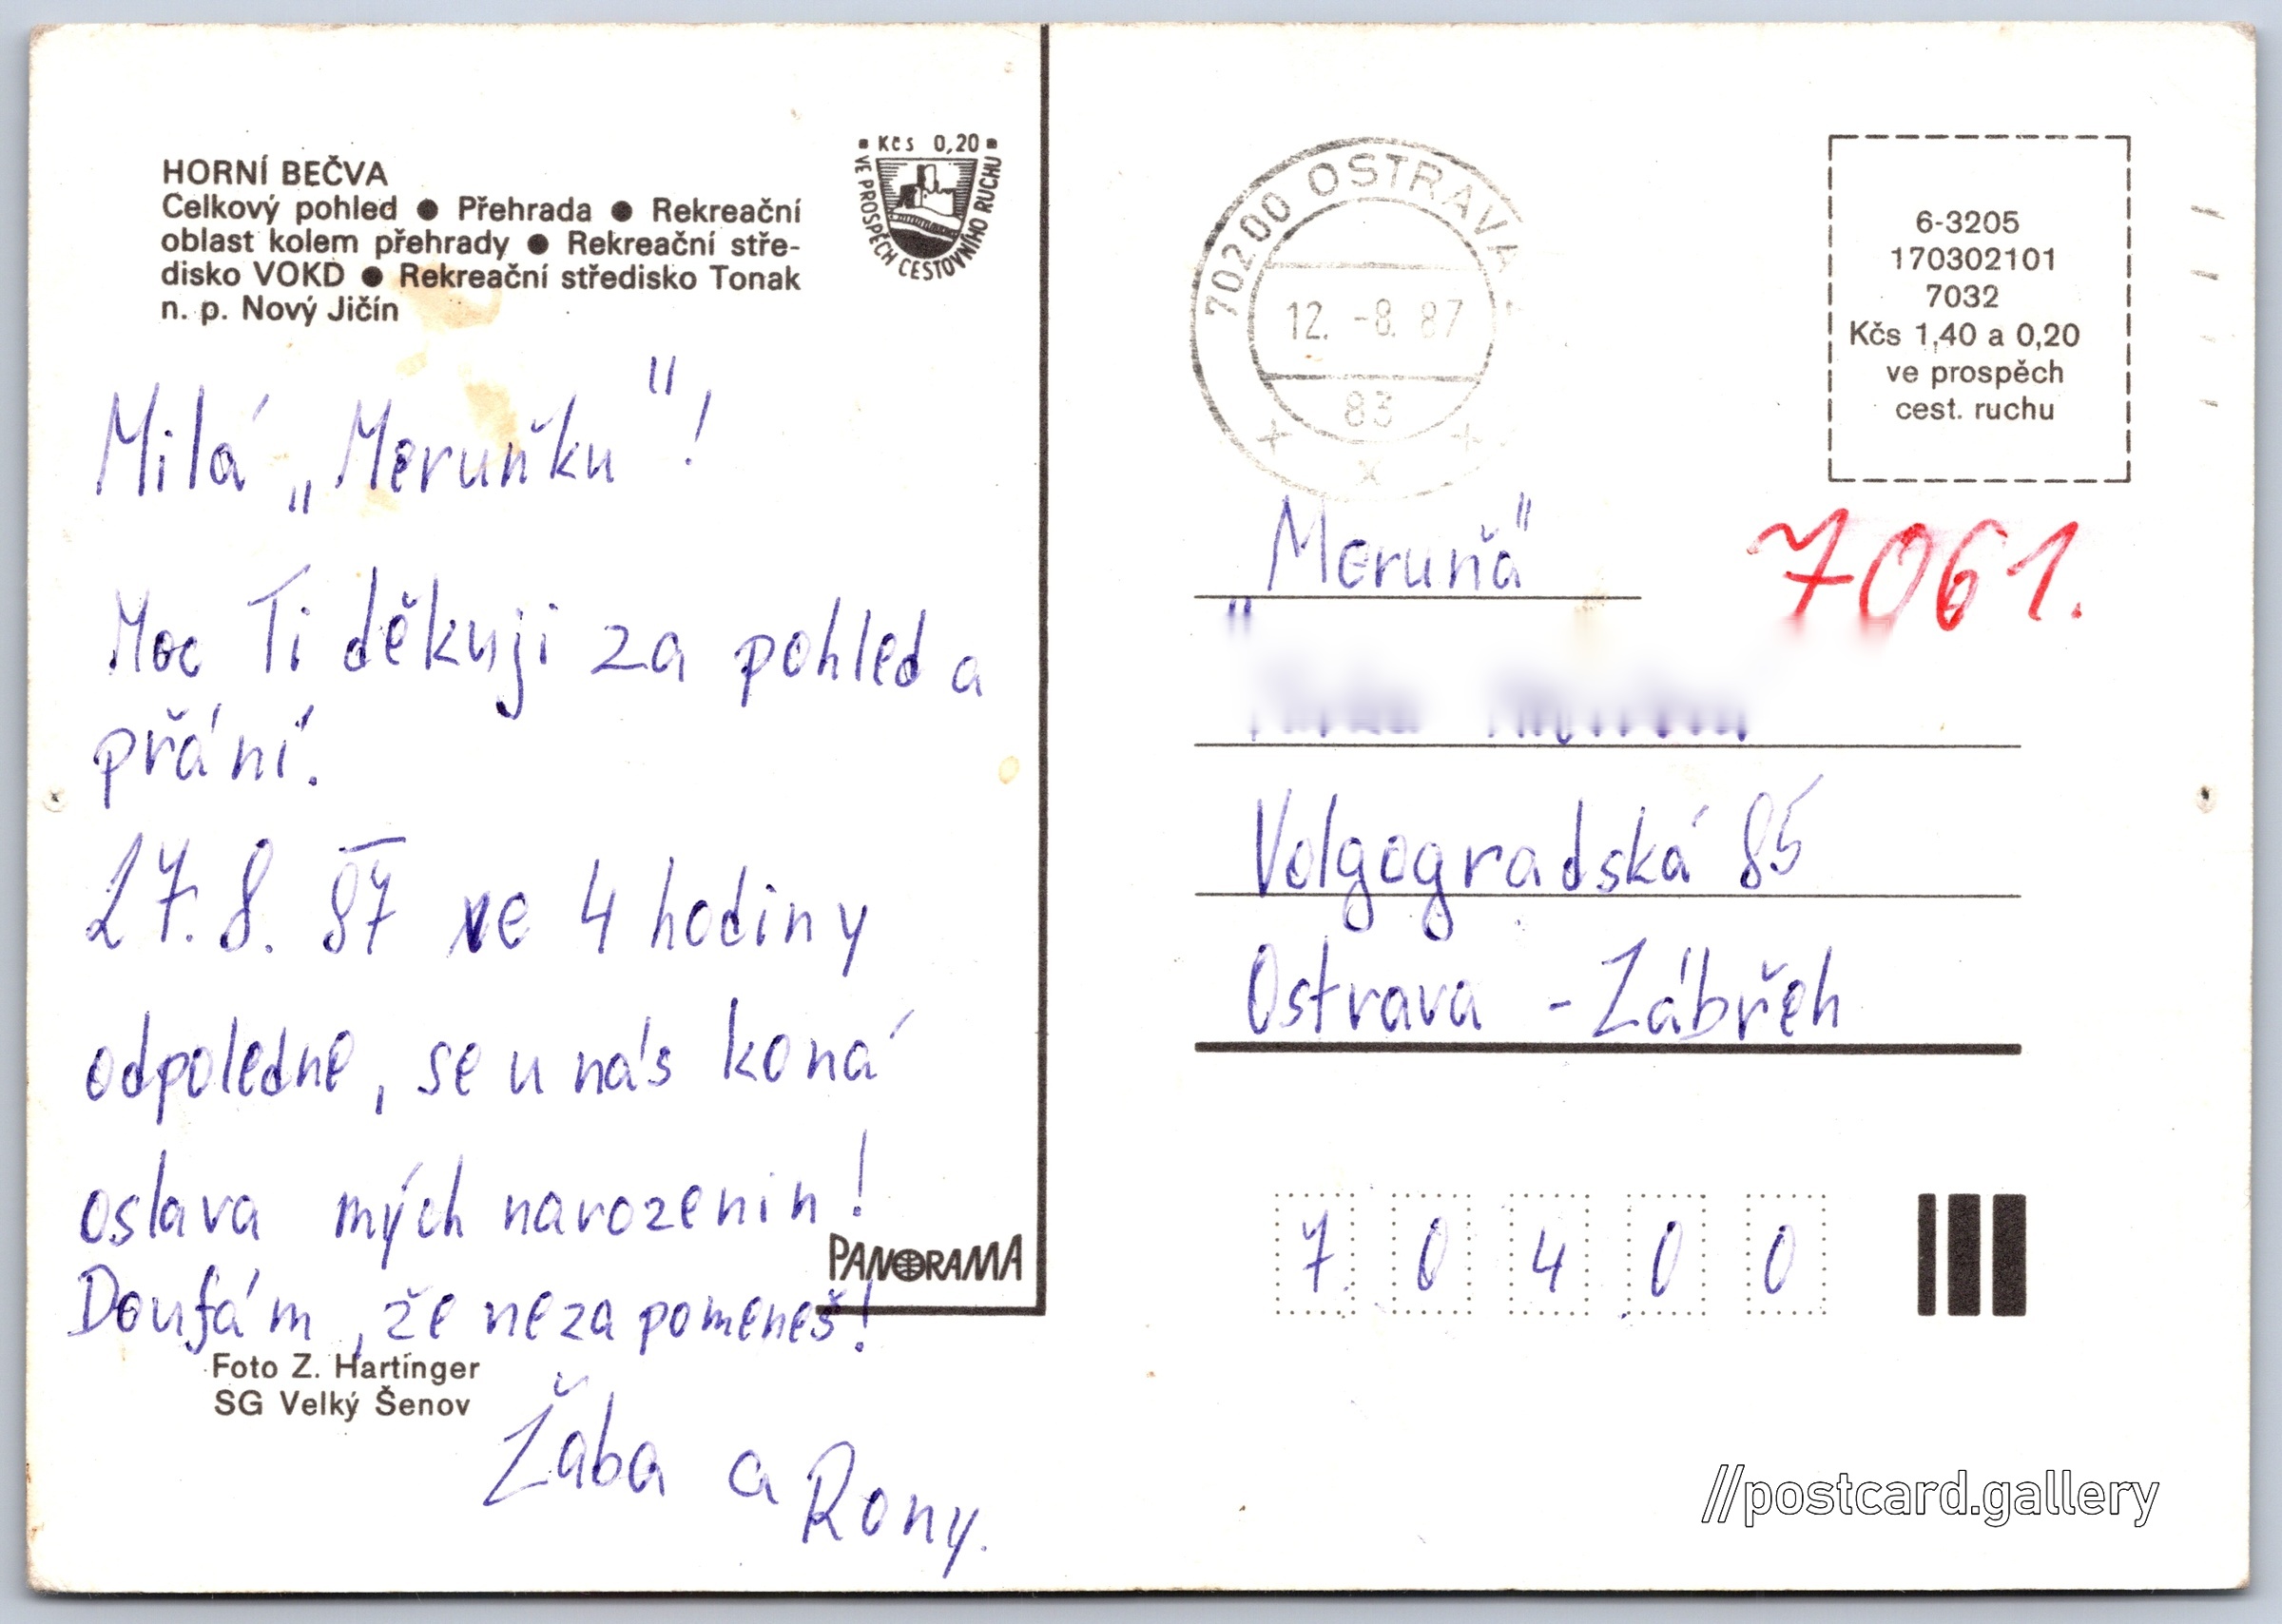 HORNÍ BEČVA
Celkový pohled ● Přehrada ● Rekreační
oblast kolem přehrady ● Rekreační stře-
disko VOKD ● Rekreační středisko Tonak
n. p. Nový Jičín
Kčs 0,20
VE PROSPĚCH CESTOVNÍHO RUCHU
Milá „Meruňku"!
Moc Ti děkuji za pohled a
přání.
27. 8. 87 ve 4 hodiny
odpoledne, se u nás koná
oslava mých narozenin!
Doufám, že nezapomeneš!
Žába a Rony.
PANORAMA
Foto Z. Hartinger
SG Velký Šenov
70200 OSTRAVA
12. -8. 87
83
6-3205
170302101
7032
Kčs 1,40 a 0,20
ve prospěch
cest. ruchu
7061.
„Meruňa"
Volgogradská 85
Ostrava - Zábřeh
70400
//postcard.gallery